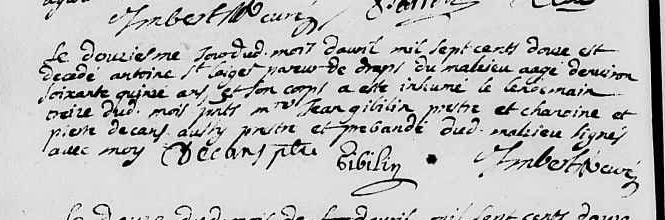 Imbert Vcuré
Le douziesme Jour dud. mois davril mil sept cents douze est
decedé antoine St laiges pareur de draps du malzieu aagé denviron
soixante quinse ans et son corps a esté inhumé le lendemain
treize dud. mois pnts mre Jean gibilin pretre et chanoine et
piere decans aussy pretre et prebandé dud. malzieu signés
avec moy Decans pbre Gibilin Imbert Vcuré
mil sept cents douze